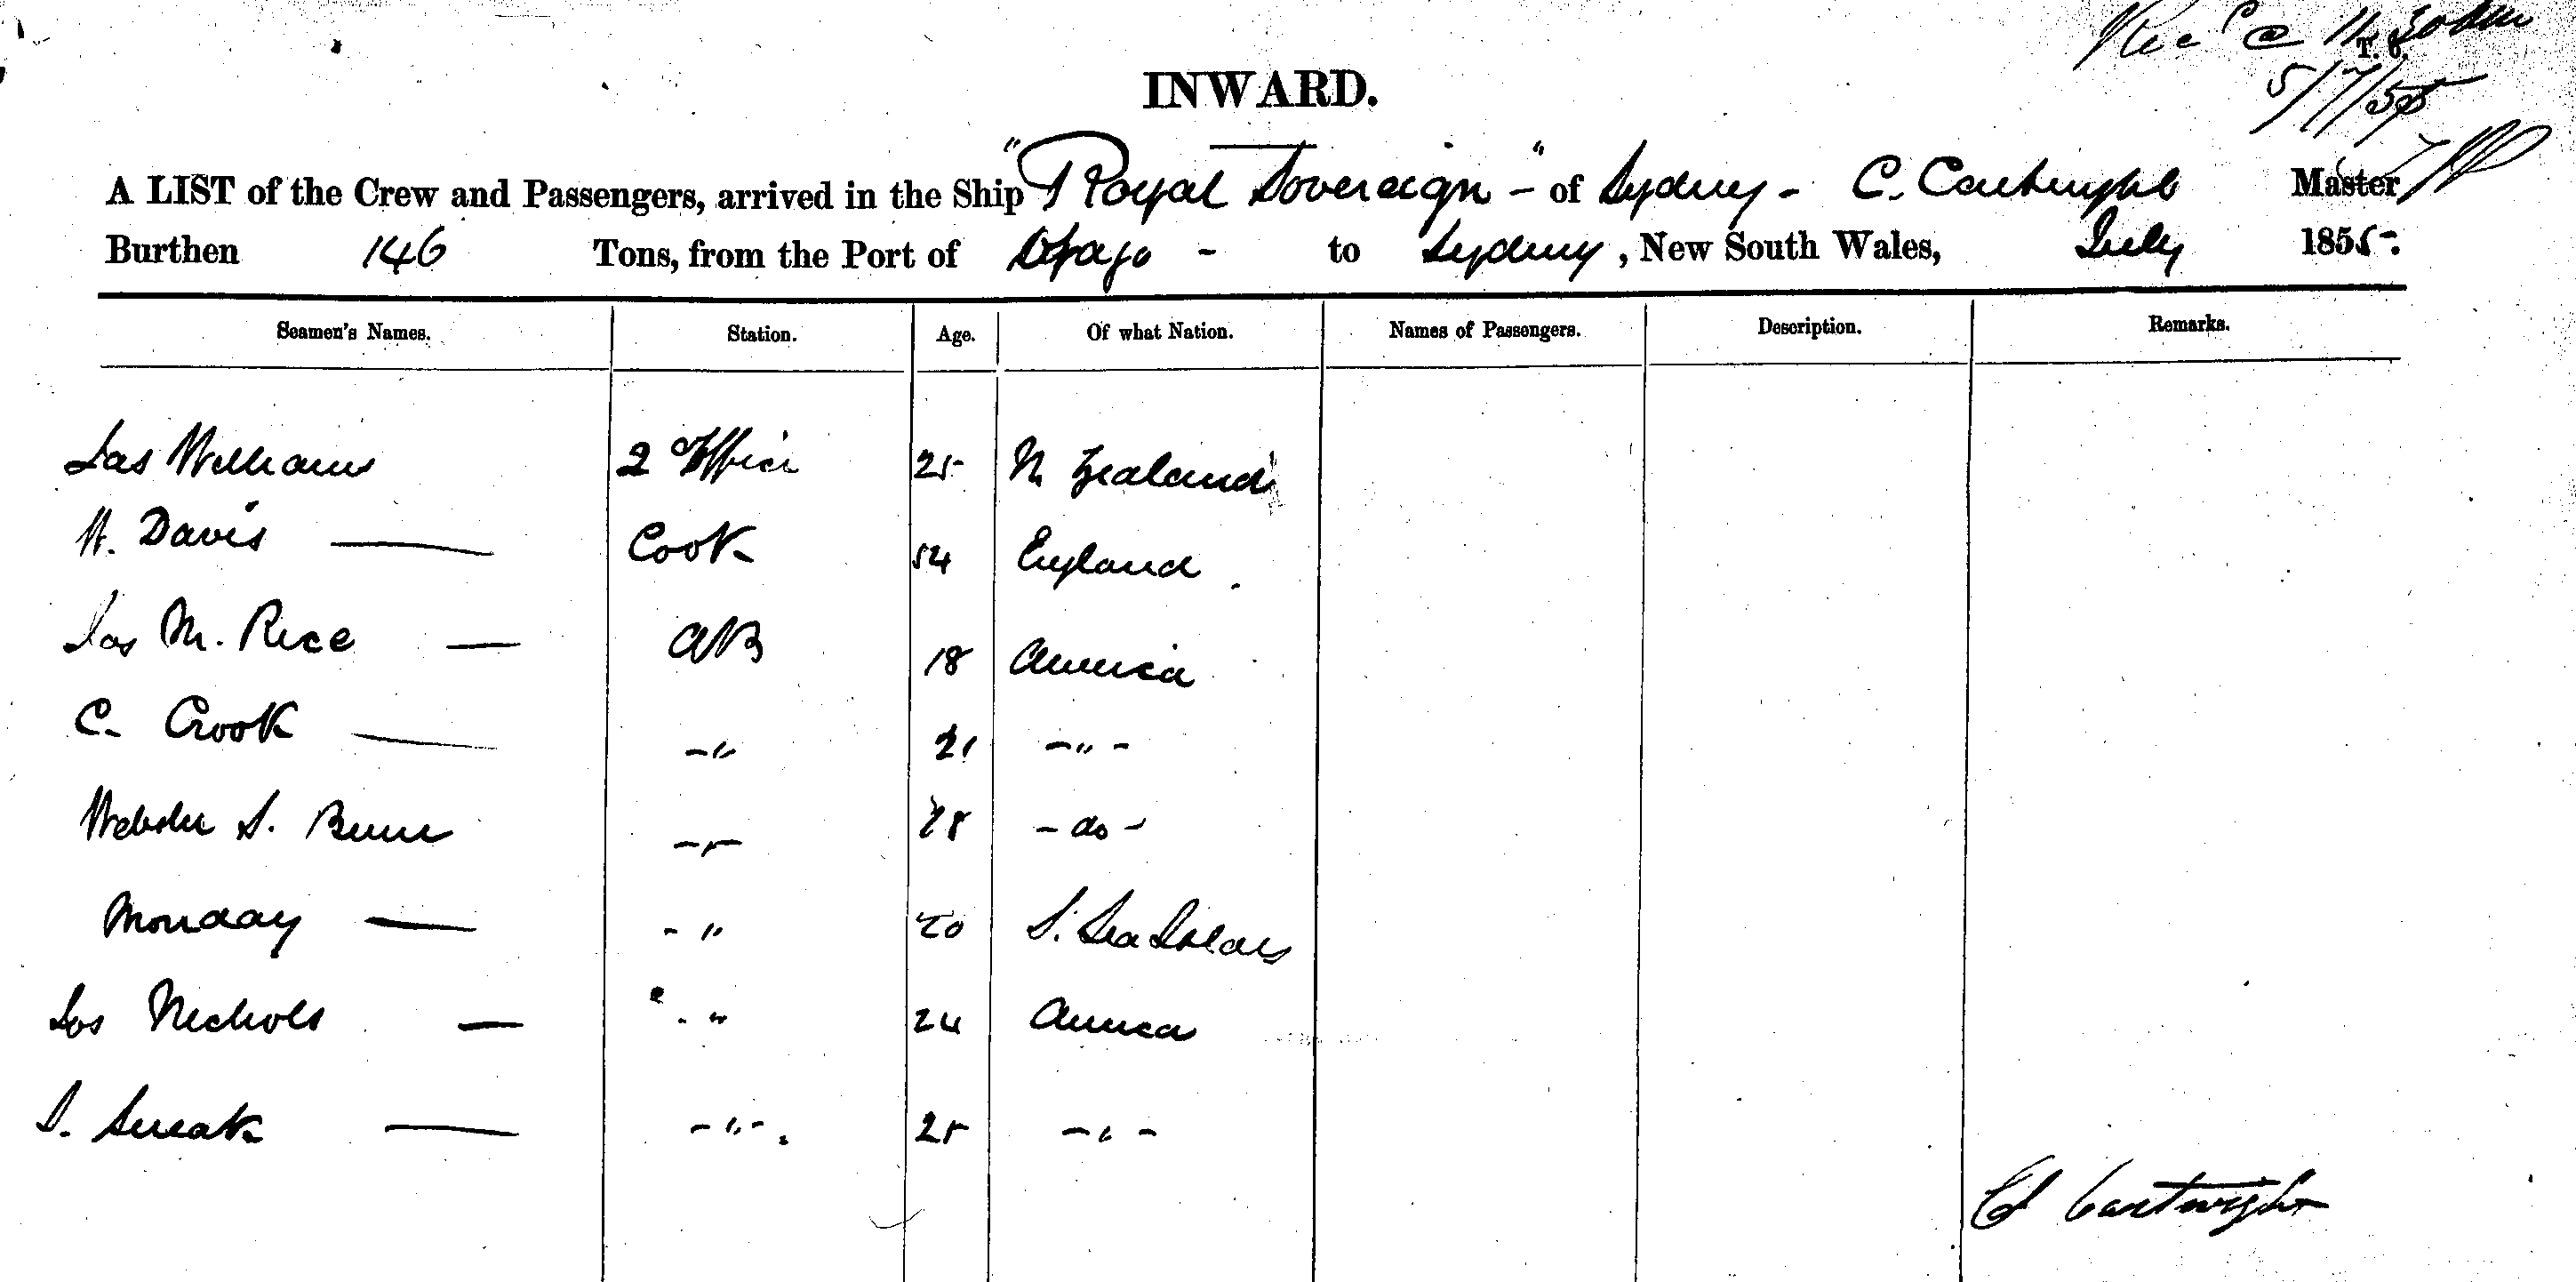 Recd @ 11.30 am
T. 6.
5/7/55
INWARD.
A LIST of the Crew and Passengers, arrived in the Ship "Royal Sovereign" - of Sydney - C. Cartwright Master
Burthen 146 Tons, from the Port of Otago - to Sydney, New South Wales, July 1855.
Seamen's Names. Station. Age. Of what Nation. Names of Passengers. Description. Remarks.
Jas Williams 2 Officer 25 N Zealand
W. Davis — Cook 54 England
Jas M. Rice — AB 18 America
C. Crook — -"- 21 -"-
Webster S. -"- 28 - do -
Monday — - " 20 S. Sea
Jos Nichols — - " 24 America
S. — -"-. 25 -"-
C Cartwright